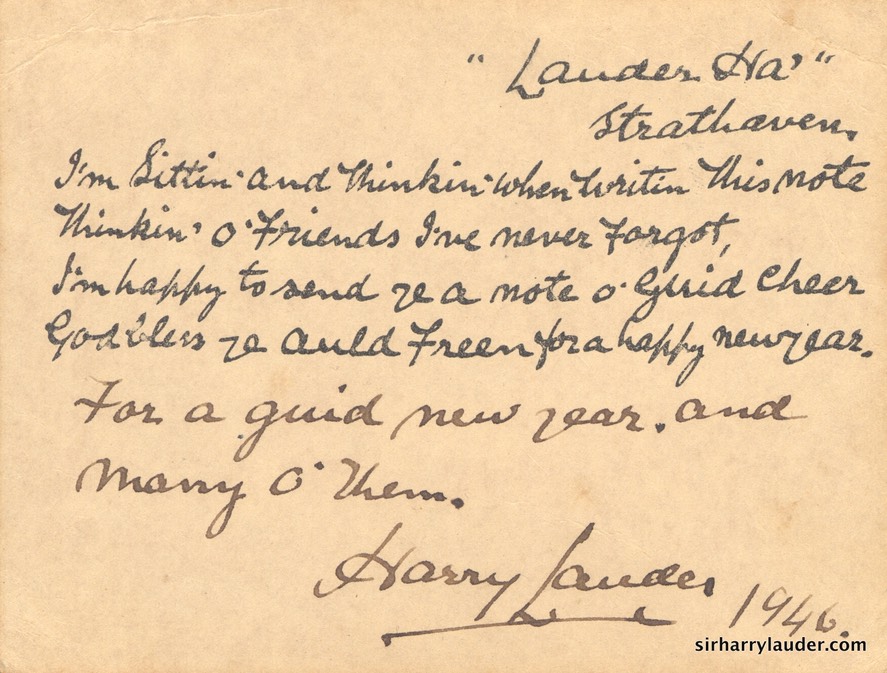 " Lauder Ha' "
Strathaven.
I'm Sittin' and thinkin' when writin this note
thinkin' o' Friends I've never Forgot,
I'm happy to send ye a note o' Guid Cheer
God bless ye auld Freen for a happy new year.
For a guid new year. and
Manny O' Them.
Harry Lauder
1946.
sirharrylauder.com